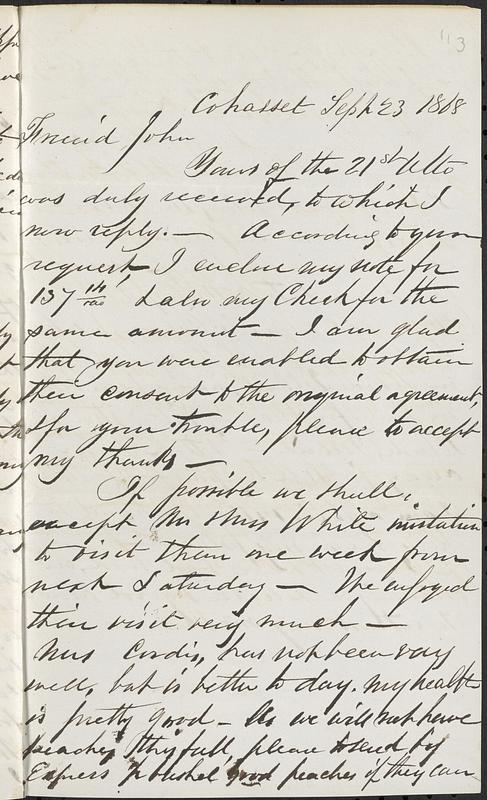 113
Cohasset Sept 23 1868
Friend John
Yours of the 21st Ulto
was duly received, to which I
now reply. — According to your
request, I enclose my note for
137 & also my Check for the
same amount — I am glad
that you were enabled to obtain
their consent to the original agreement,
& for your trouble, please to accept
my thanks —
If possible we shall,
except Mr & Mrs White invitation
to visit them one week from
next Saturday — We enjoyed
their visit very much —
Mrs Cordis, has not been very
well, but is better to day. My health
is pretty good — As we will not have
peaches this fall, please to send by
Express bushel good peaches if they can